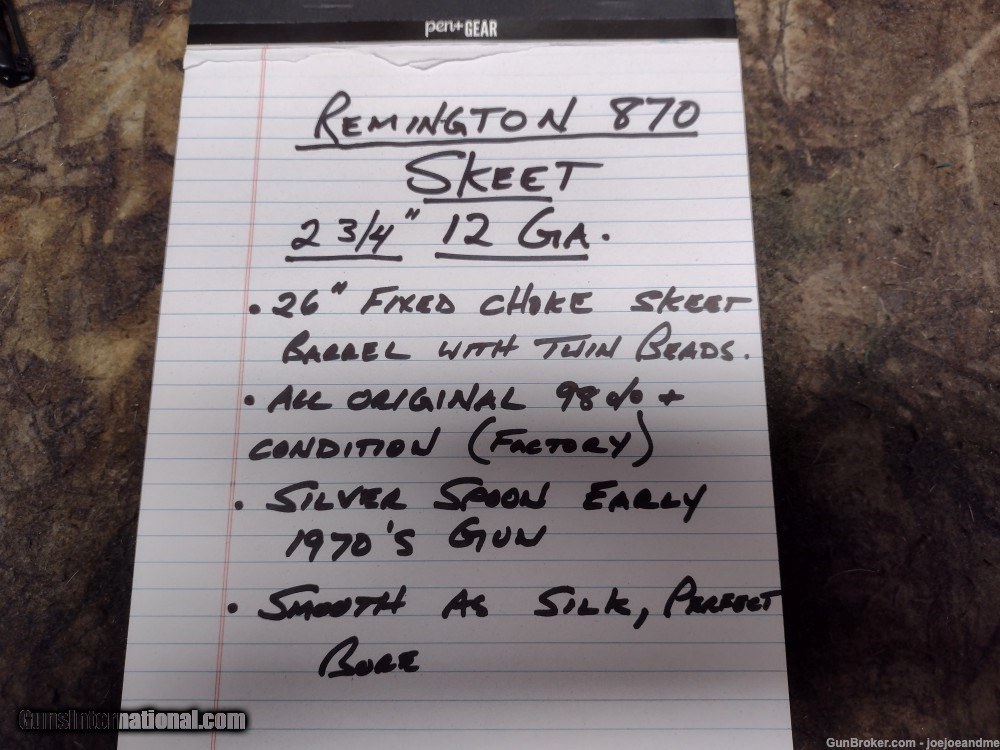 pen+GEAR
REMINGTON 870
SKEET
2 3/4" 12 GA.
• 26" FIXED CHOKE SKEET
BARREL WITH TWIN BEADS.
• ALL ORIGINAL 98% +
CONDITION (FACTORY)
• SILVER SPOON EARLY
1970'S GUN
• SMOOTH AS SILK, PERFECT
BORE
GunsInternational.com
GunBroker.com - joejoeandme